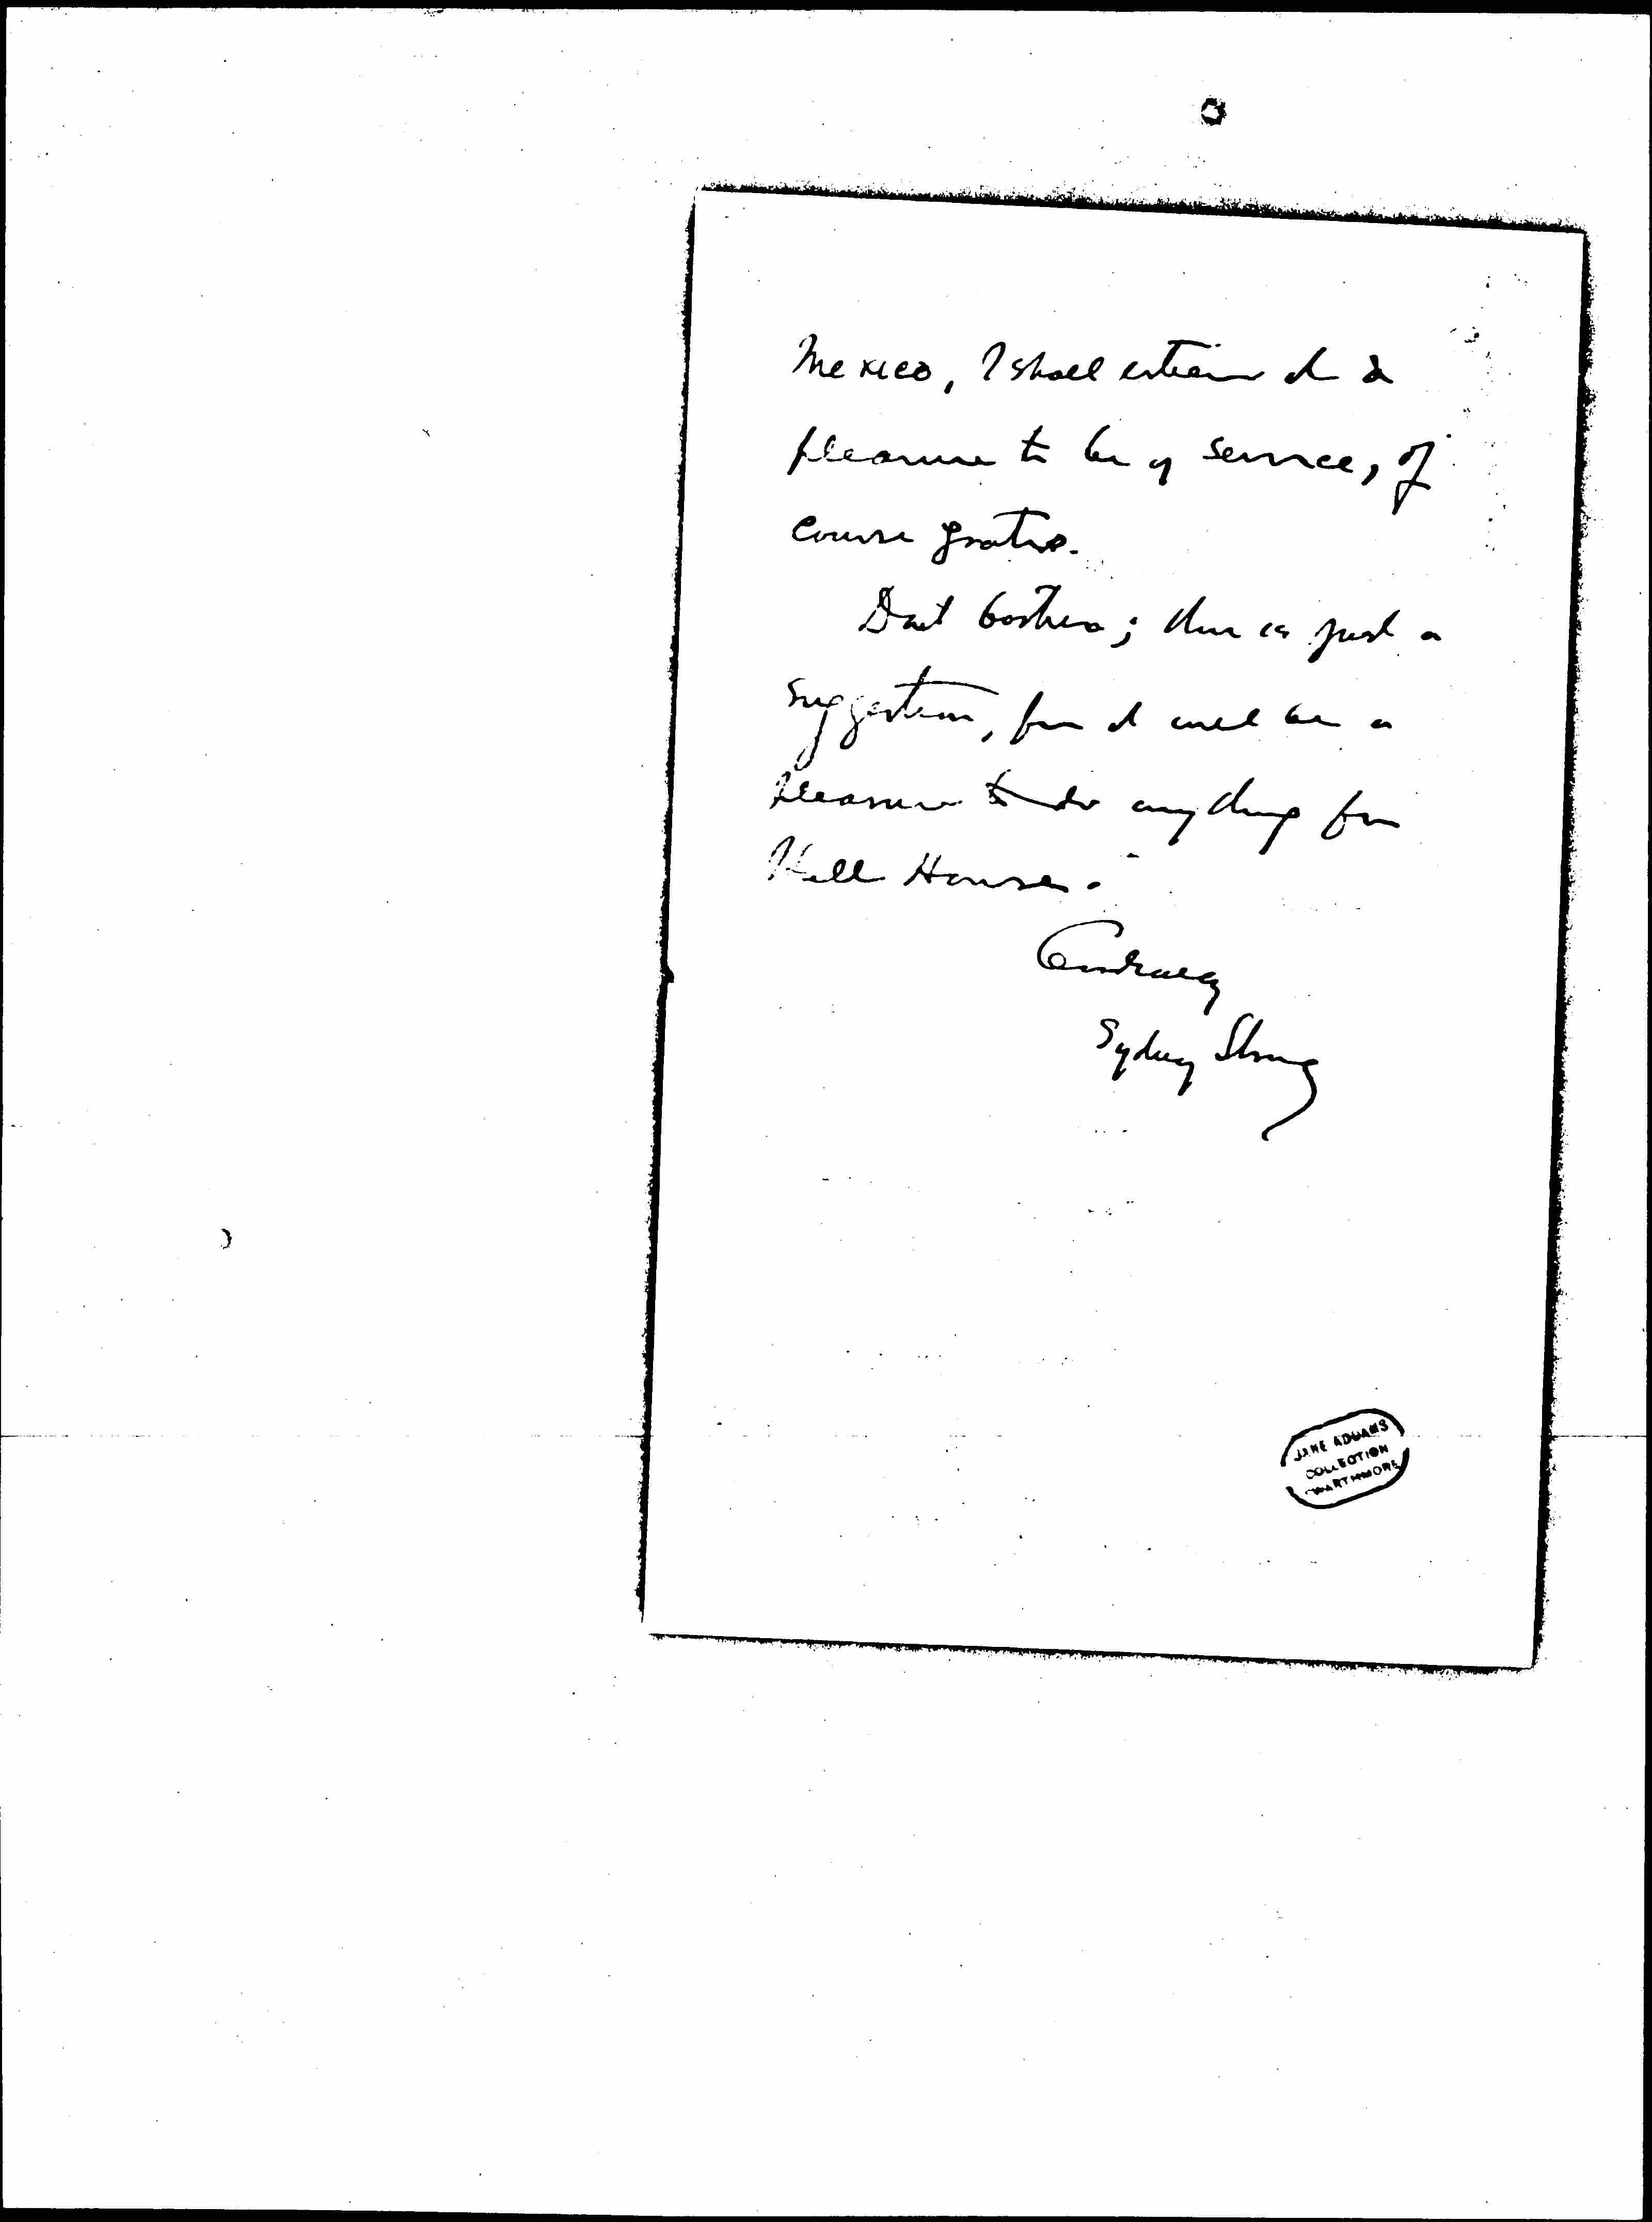 Mexico, I shall esteem it a
pleasure to be of service, of
course gratis.
Dont bother; this is just a
suggestion, for it will be a
pleasure to do anything for
Hull House.
Cordially
Sydney Strong
JANE ADDAMS
COLLECTION
SWARTHMORE